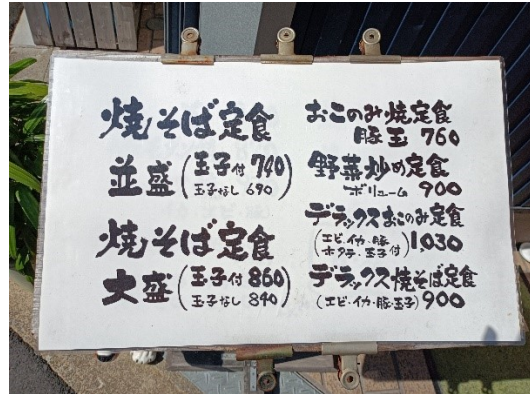 焼そば定食
並盛(玉子付 740
玉子なし 690)
焼そば定食
大盛(玉子付 860
玉子なし 840)
おこのみ焼定食
豚玉 760
野菜炒め定食
ボリューム 900
デラックスおこのみ定食
(エビ・イカ・豚
ホタテ・玉子付) 1,030
デラックス焼そば定食
(エビ・イカ・豚・玉子) 900